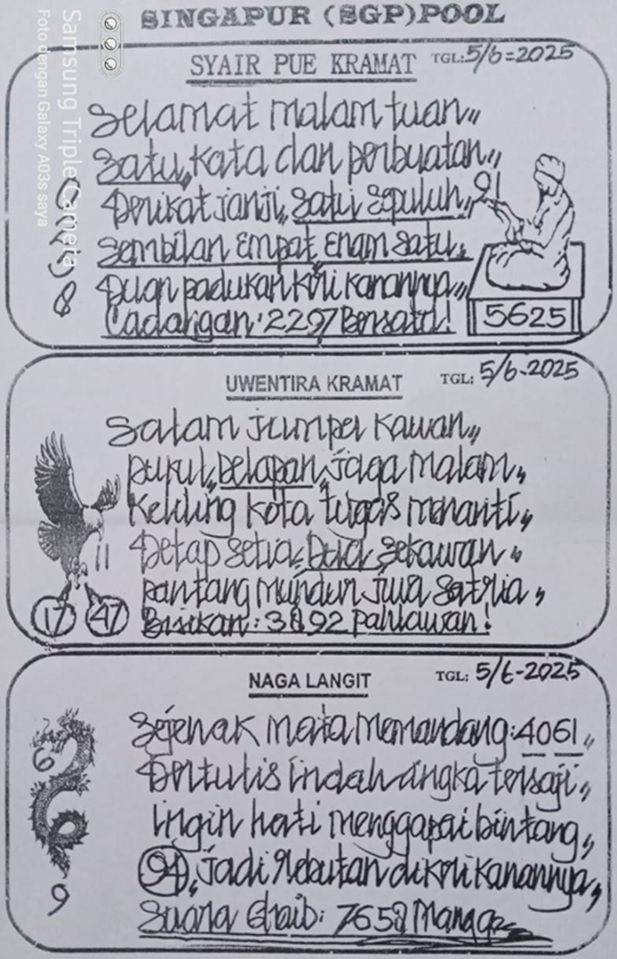 SINGAPUR (SGP)POOL
Samsung Triple Camera
Foto dengan Galaxy A03s saya
SYAIR PUE KRAMAT TGL: 5/6=2025
Selamat malam tuan,,
Satu, kata dan perbuatan,,
Berikat janji,, Satu Sepuluh,,
Sembilan Empat, Enam Satu,
padukan kiri kanannya,,
Cadangan: 2297 Bersatu!
91
8
5625
UWENTIRA KRAMAT TGL: 5/6-2025
Salam jumpa kawan,,
pukul,, Delapan,, jaga malam,
Keliling kota tugas menanti,,
Tetap setia, Dua, sekawan,,
pantang mundur jiwa satria,,
Bisikan: 3892 pahlawan!
11
17 47
NAGA LANGIT TGL: 5/6-2025
Sejenak mata memandang: 4061,,
Tertulis indah angka tersaji,,
Ingin hati menggapai bintang,,
94, jadi rebutan di kiri kanannya,,
Suara Ghaib: 7658 Mangga
6
9